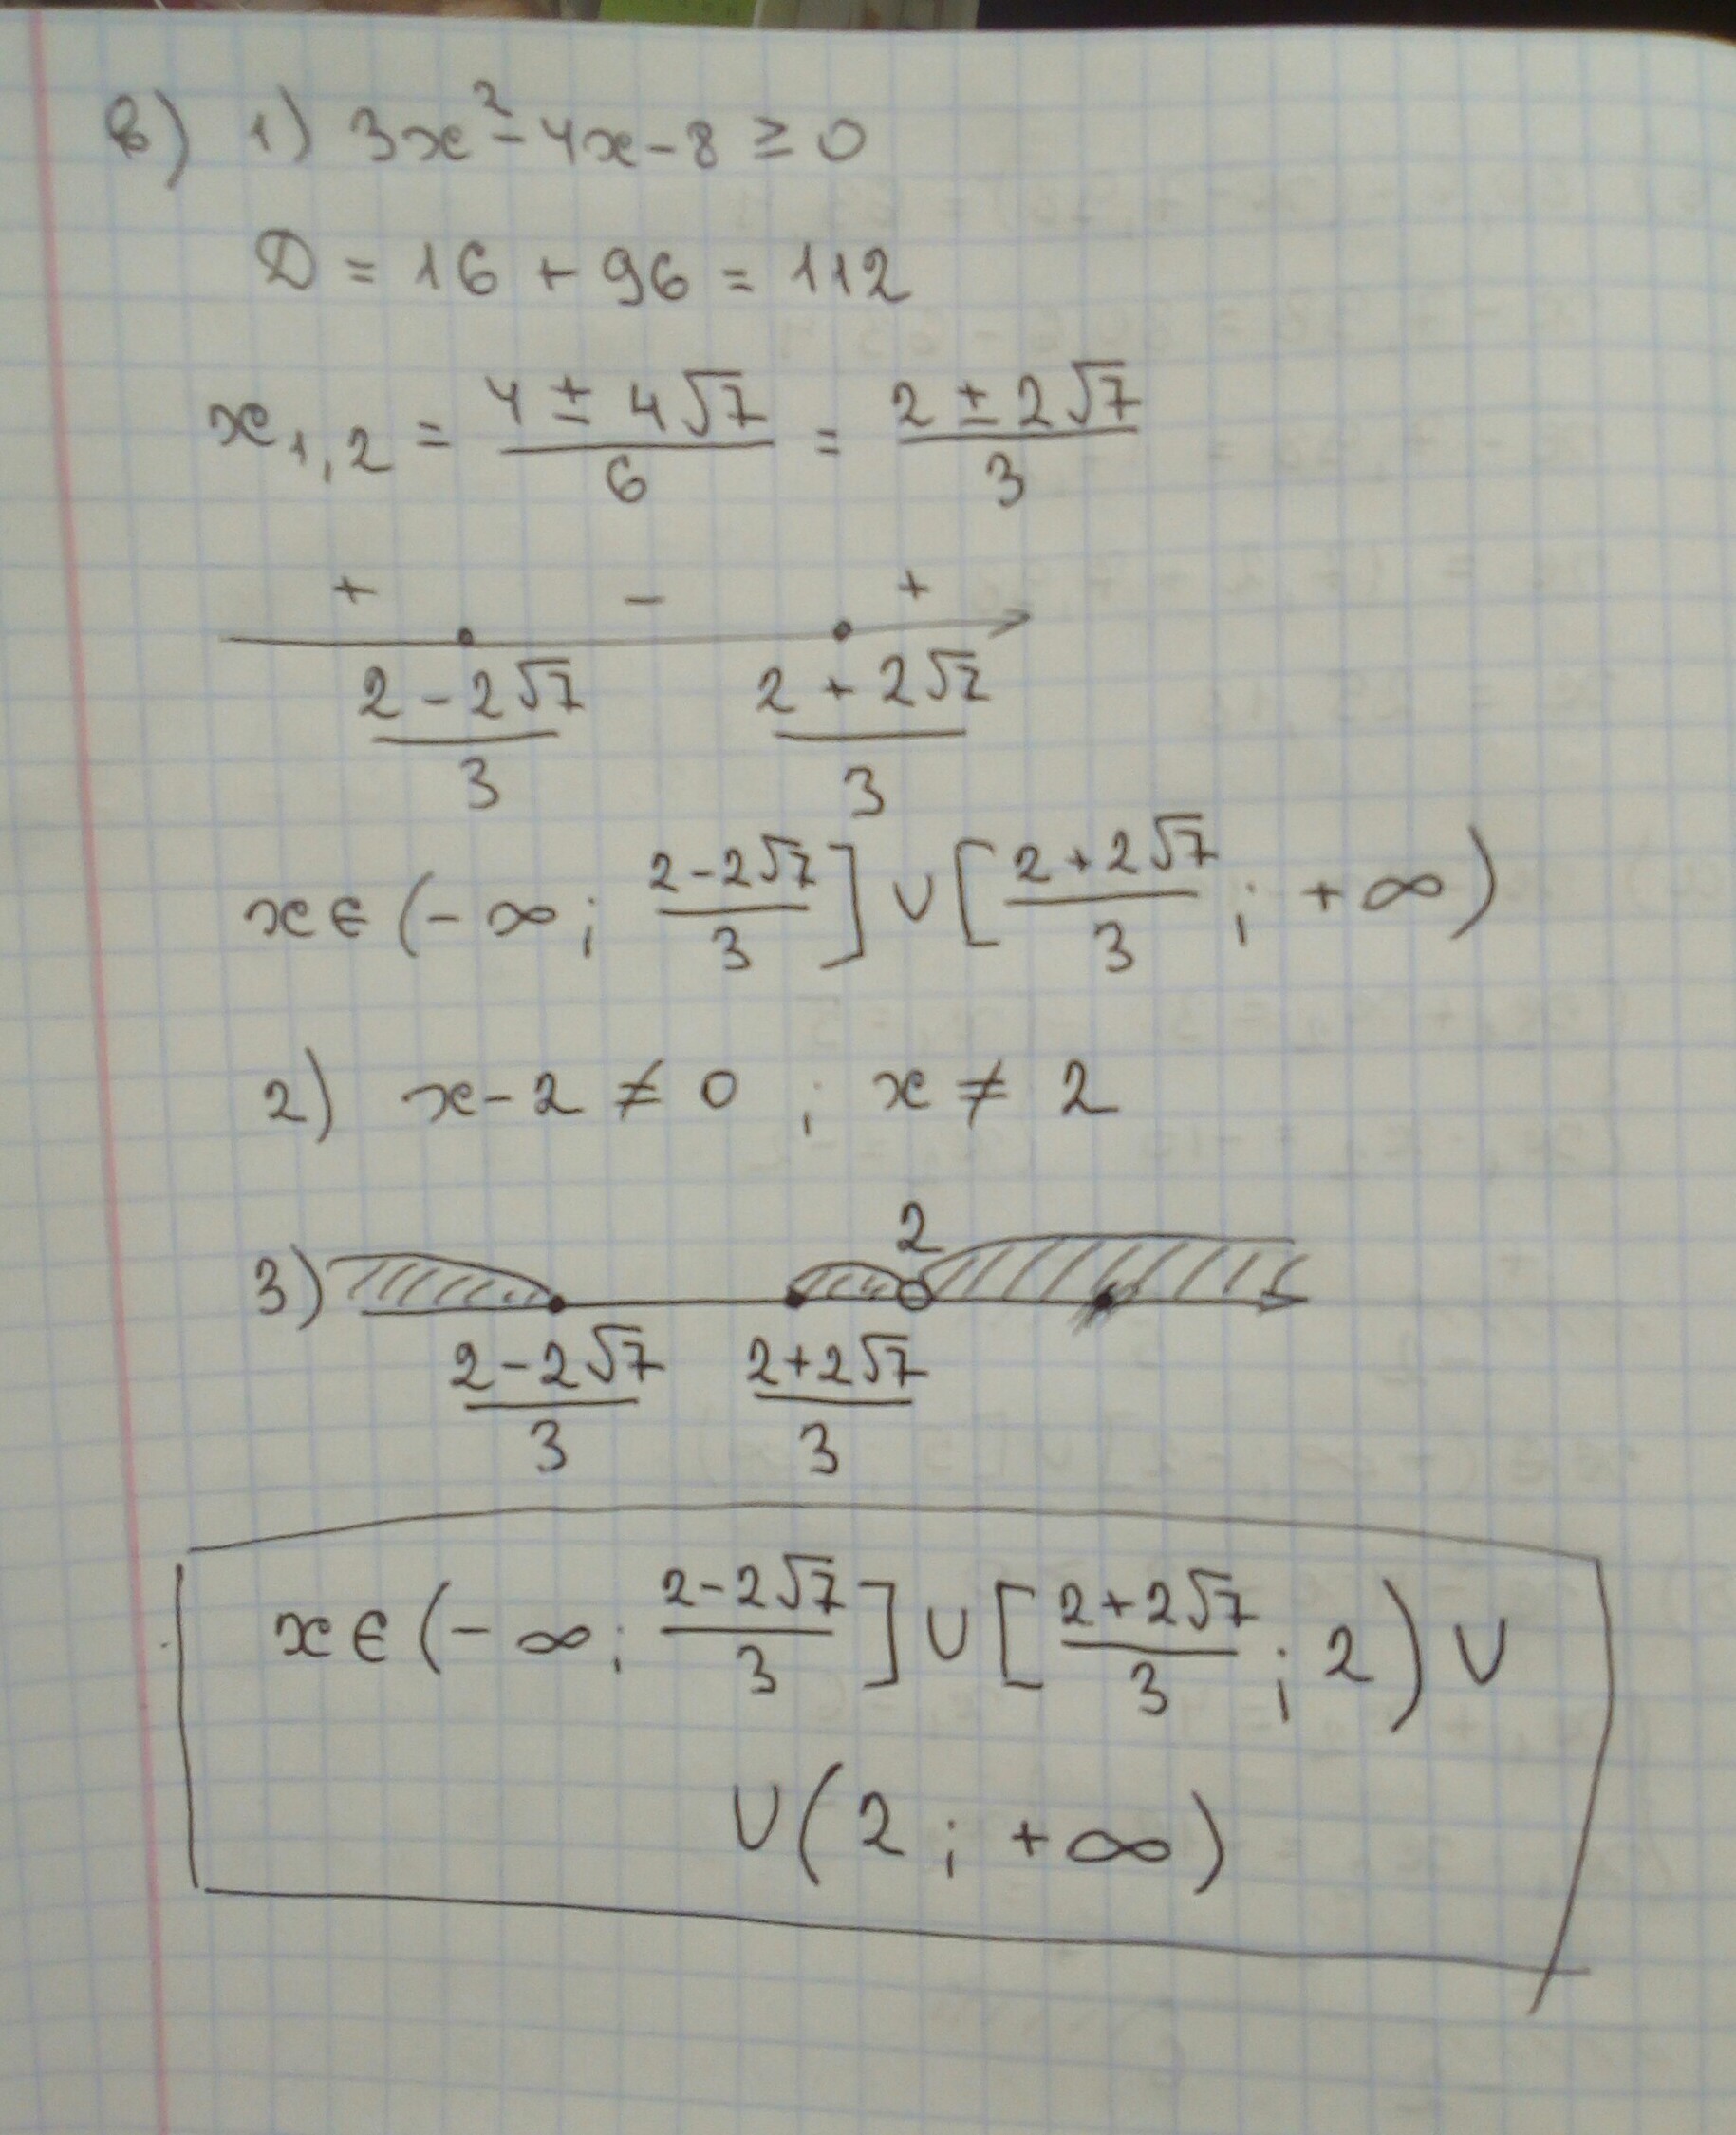 в) 1) 3x² - 4x - 8 ≥ 0
D = 16 + 96 = 112
x₁,₂ = (4 ± 4√7)/6 = (2 ± 2√7)/3
+ − +
(2 - 2√7)/3 (2 + 2√7)/3
x ∈ (-∞; (2 - 2√7)/3] ∪ [(2 + 2√7)/3; +∞)
2) x - 2 ≠ 0; x ≠ 2
3) 2
(2 - 2√7)/3 (2 + 2√7)/3
x ∈ (-∞; (2 - 2√7)/3] ∪ [(2 + 2√7)/3; 2) ∪
∪ (2; +∞)